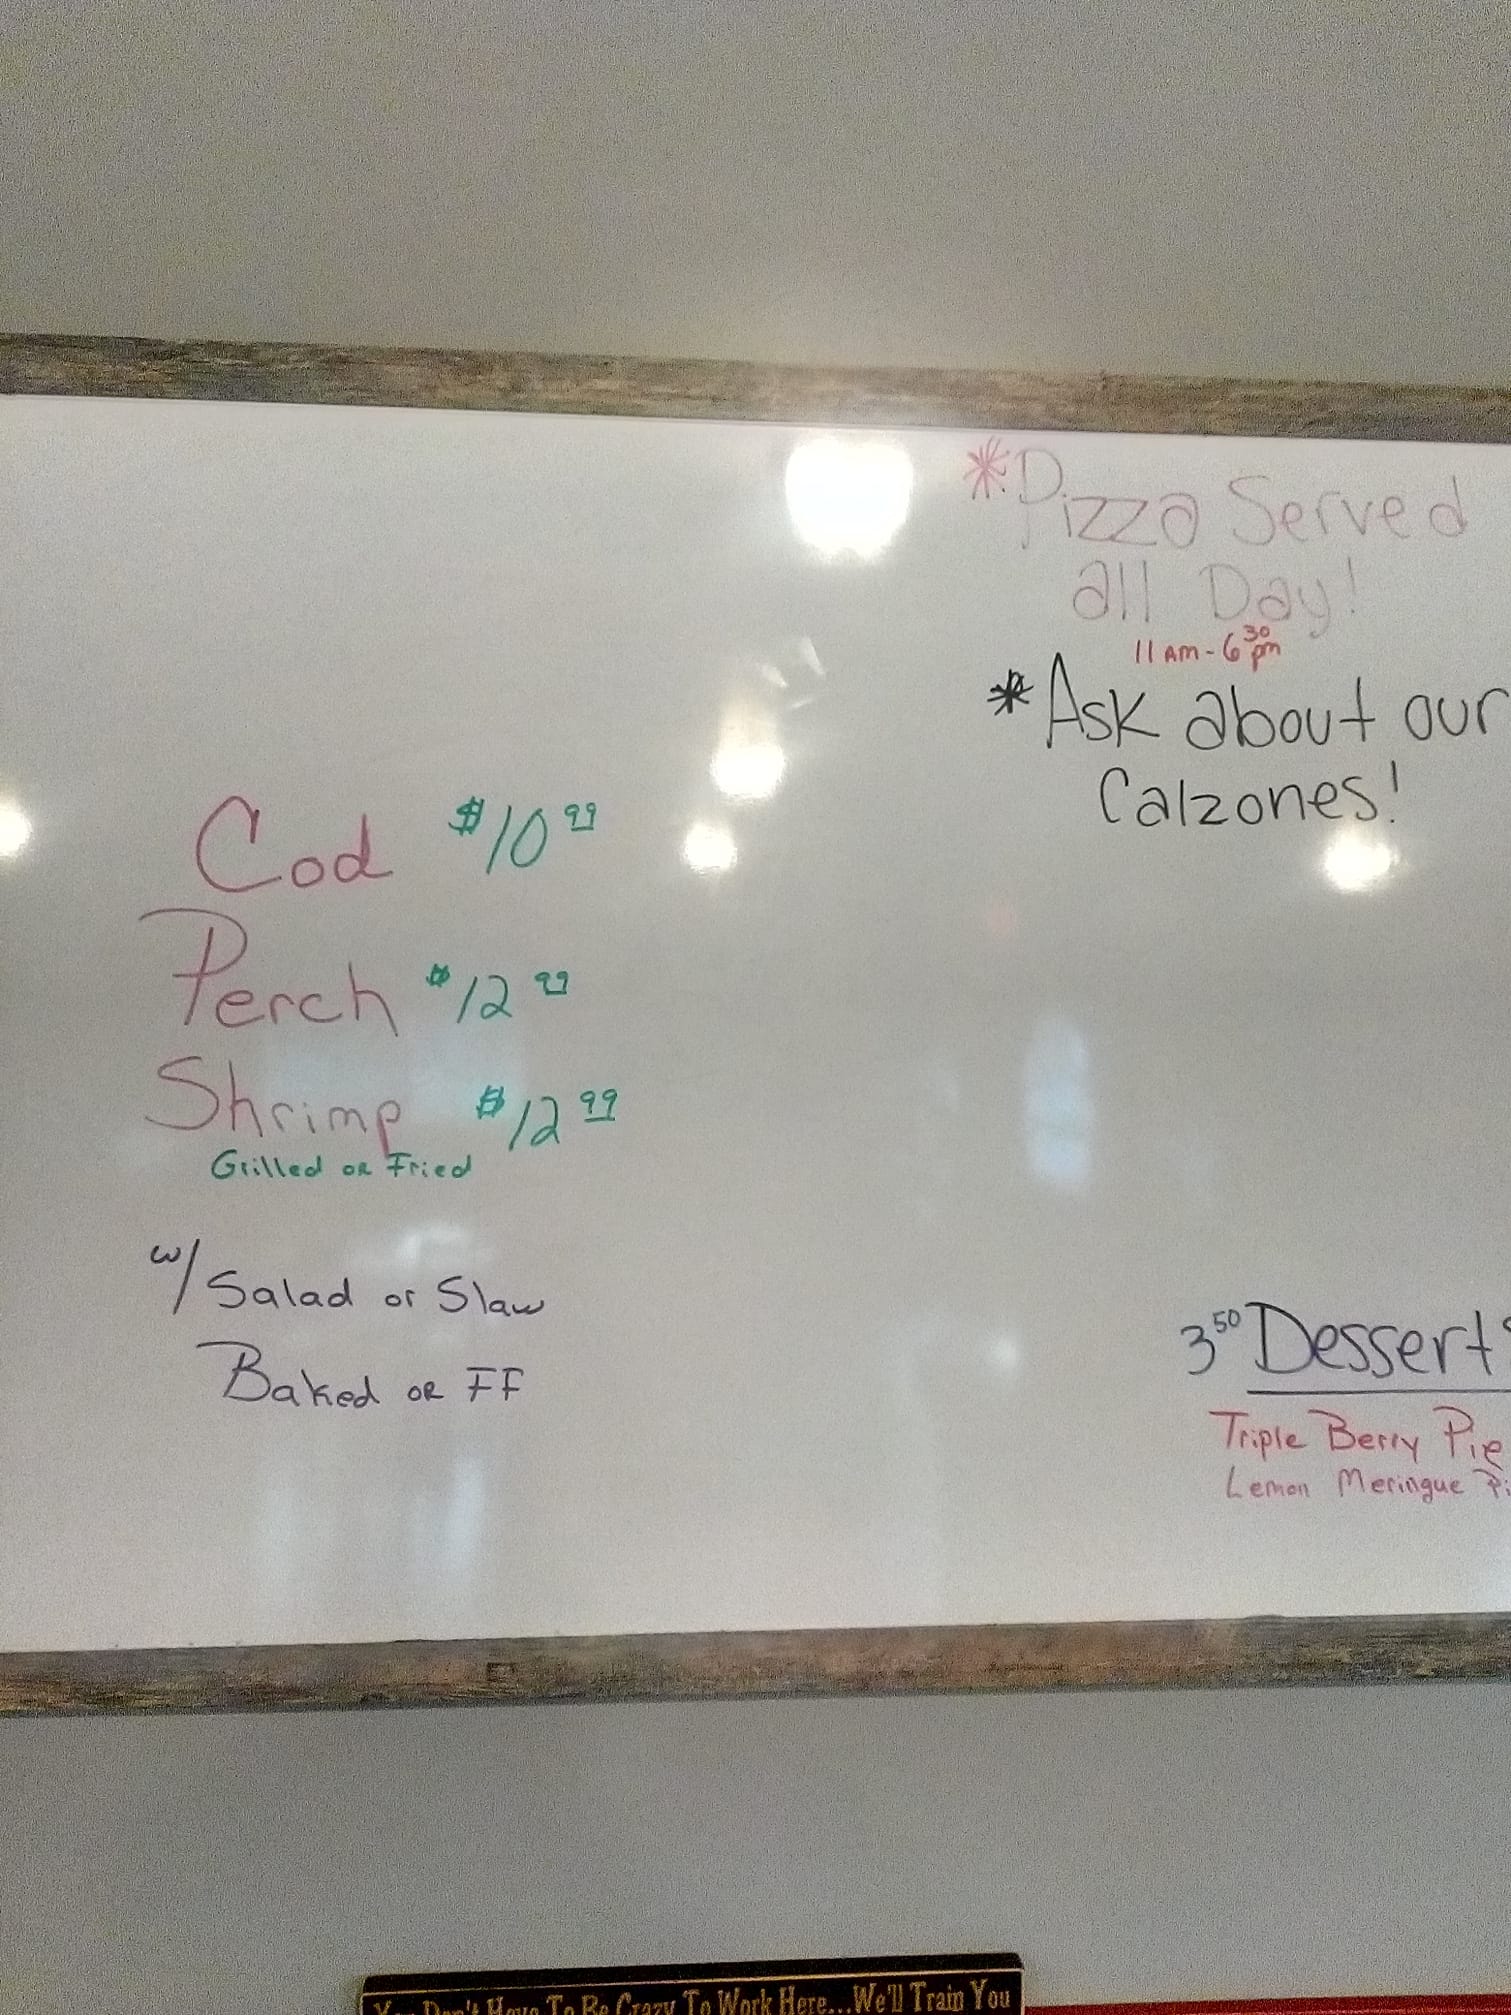 *Pizza Served
all Day!
11 AM - 6 30 pm
*Ask about our
Calzones!
Cod $10 99
Perch $12 99
Shrimp $12 99
Grilled or Fried
w/ Salad or Slaw
Baked or FF
3 50 Desserts
Triple Berry Pie
Lemon Meringue Pi
You Don't Have To Be Crazy To Work Here...We'll Train You